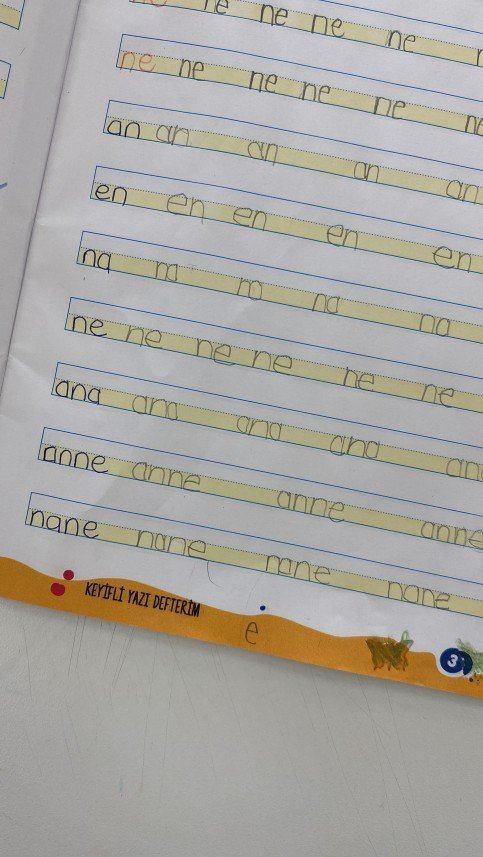 ne ne ne ne
ne ne ne ne ne ne
an an an an an
en en en en en
na na na na na
ne ne ne ne he ne
ana ana ana ana an
anne anne anne anne
nane nane nane nane
KEYİFLİ YAZI DEFTERİM
e
3